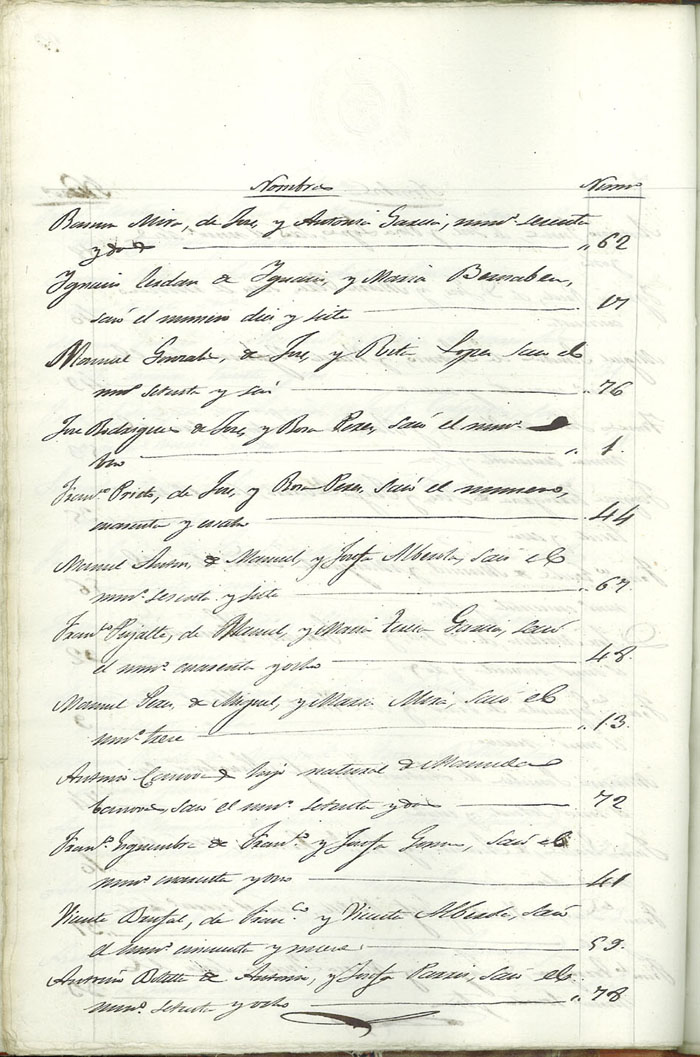 Nombres Num.º
Mira, de José, y Antonia Garcia, num.º sesenta
y dos 62
Ignacio Cerdan de Ignacio, y Maria Bernabeu,
sacó el numero diez y siete 17
Manuel Gonzalez, de José, y Rita Lopez sacó el
num.º setenta y seis 76
José Rodriguez de José, y Rosa Perez, sacó el num.º
uno 1.
Fran.co Prieto, de José, y Rosa Perez, sacó el numero,
cuarenta y cuatro 44
Manuel Anton, de Manuel, y Josefa Alberola, sacó el
num.º sesenta y siete 67.
Fran.co Pujalte, de Manuel, y Maria Teresa Garcia, sacó
el num.º cuarenta y ocho 48.
Manuel Perez, de Miguel, y Maria Mira, sacó el
num.º trece 13.
Antonio hijo natural de
sacó el num.º setenta y dos 72
Fran.co de Fran.co y Josefa sacó el
num.º cuarenta y uno 41
Vicente Brufal, de Fran.co y Vicenta sacó
el num.º cincuenta y nueve 59.
Antonio de Antonio, y Josefa sacó el
num.º setenta y ocho 78